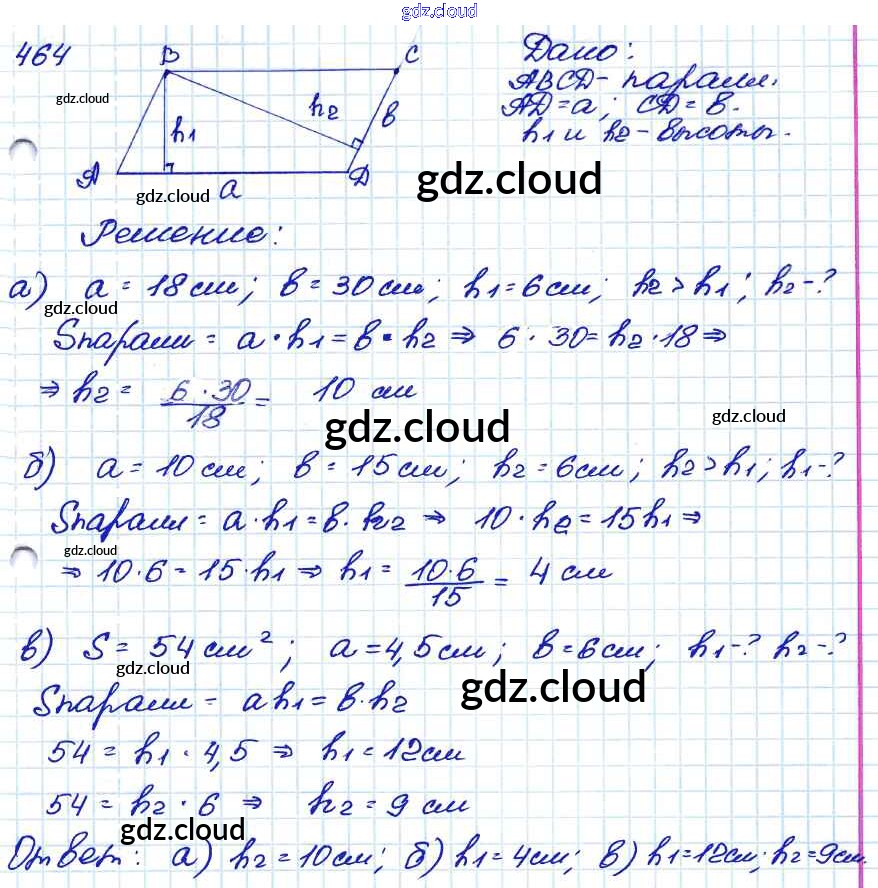 gdz.cloud
464
B
C
Дано:
ABCD - паралл.
gdz.cloud
h2
в
AD = a; CD = в.
h1
h1 и h2 - высоты.
A
D
gdz.cloud
gdz.cloud
a
Решение:
а) a = 18 см; в = 30 см; h1 = 6 см; h2 > h1; h2 - ?
gdz.cloud
Sпаралл = a · h1 = в · h2 ⇒ 6 · 30 = h2 · 18 ⇒
⇒ h2 = 6 · 30 / 18 = 10 см
gdz.cloud
gdz.cloud
б) a = 10 см; в = 15 см; h2 = 6 см; h2 > h1; h1 - ?
Sпаралл = a · h1 = в · h2 ⇒ 10 · h2 = 15h1 ⇒
gdz.cloud
⇒ 10 · 6 = 15 · h1 ⇒ h1 = 10 · 6 / 15 = 4 см
в) S = 54 см²; a = 4,5 см; в = 6 см; h1 - ? h2 - ?
gdz.cloud
gdz.cloud
Sпаралл = ah1 = в · h2
54 = h1 · 4,5 ⇒ h1 = 12 см
54 = h2 · 6 ⇒ h2 = 9 см
gdz.cloud
Ответ: а) h2 = 10 см; б) h1 = 4 см; в) h1 = 12 см; h2 = 9 см.